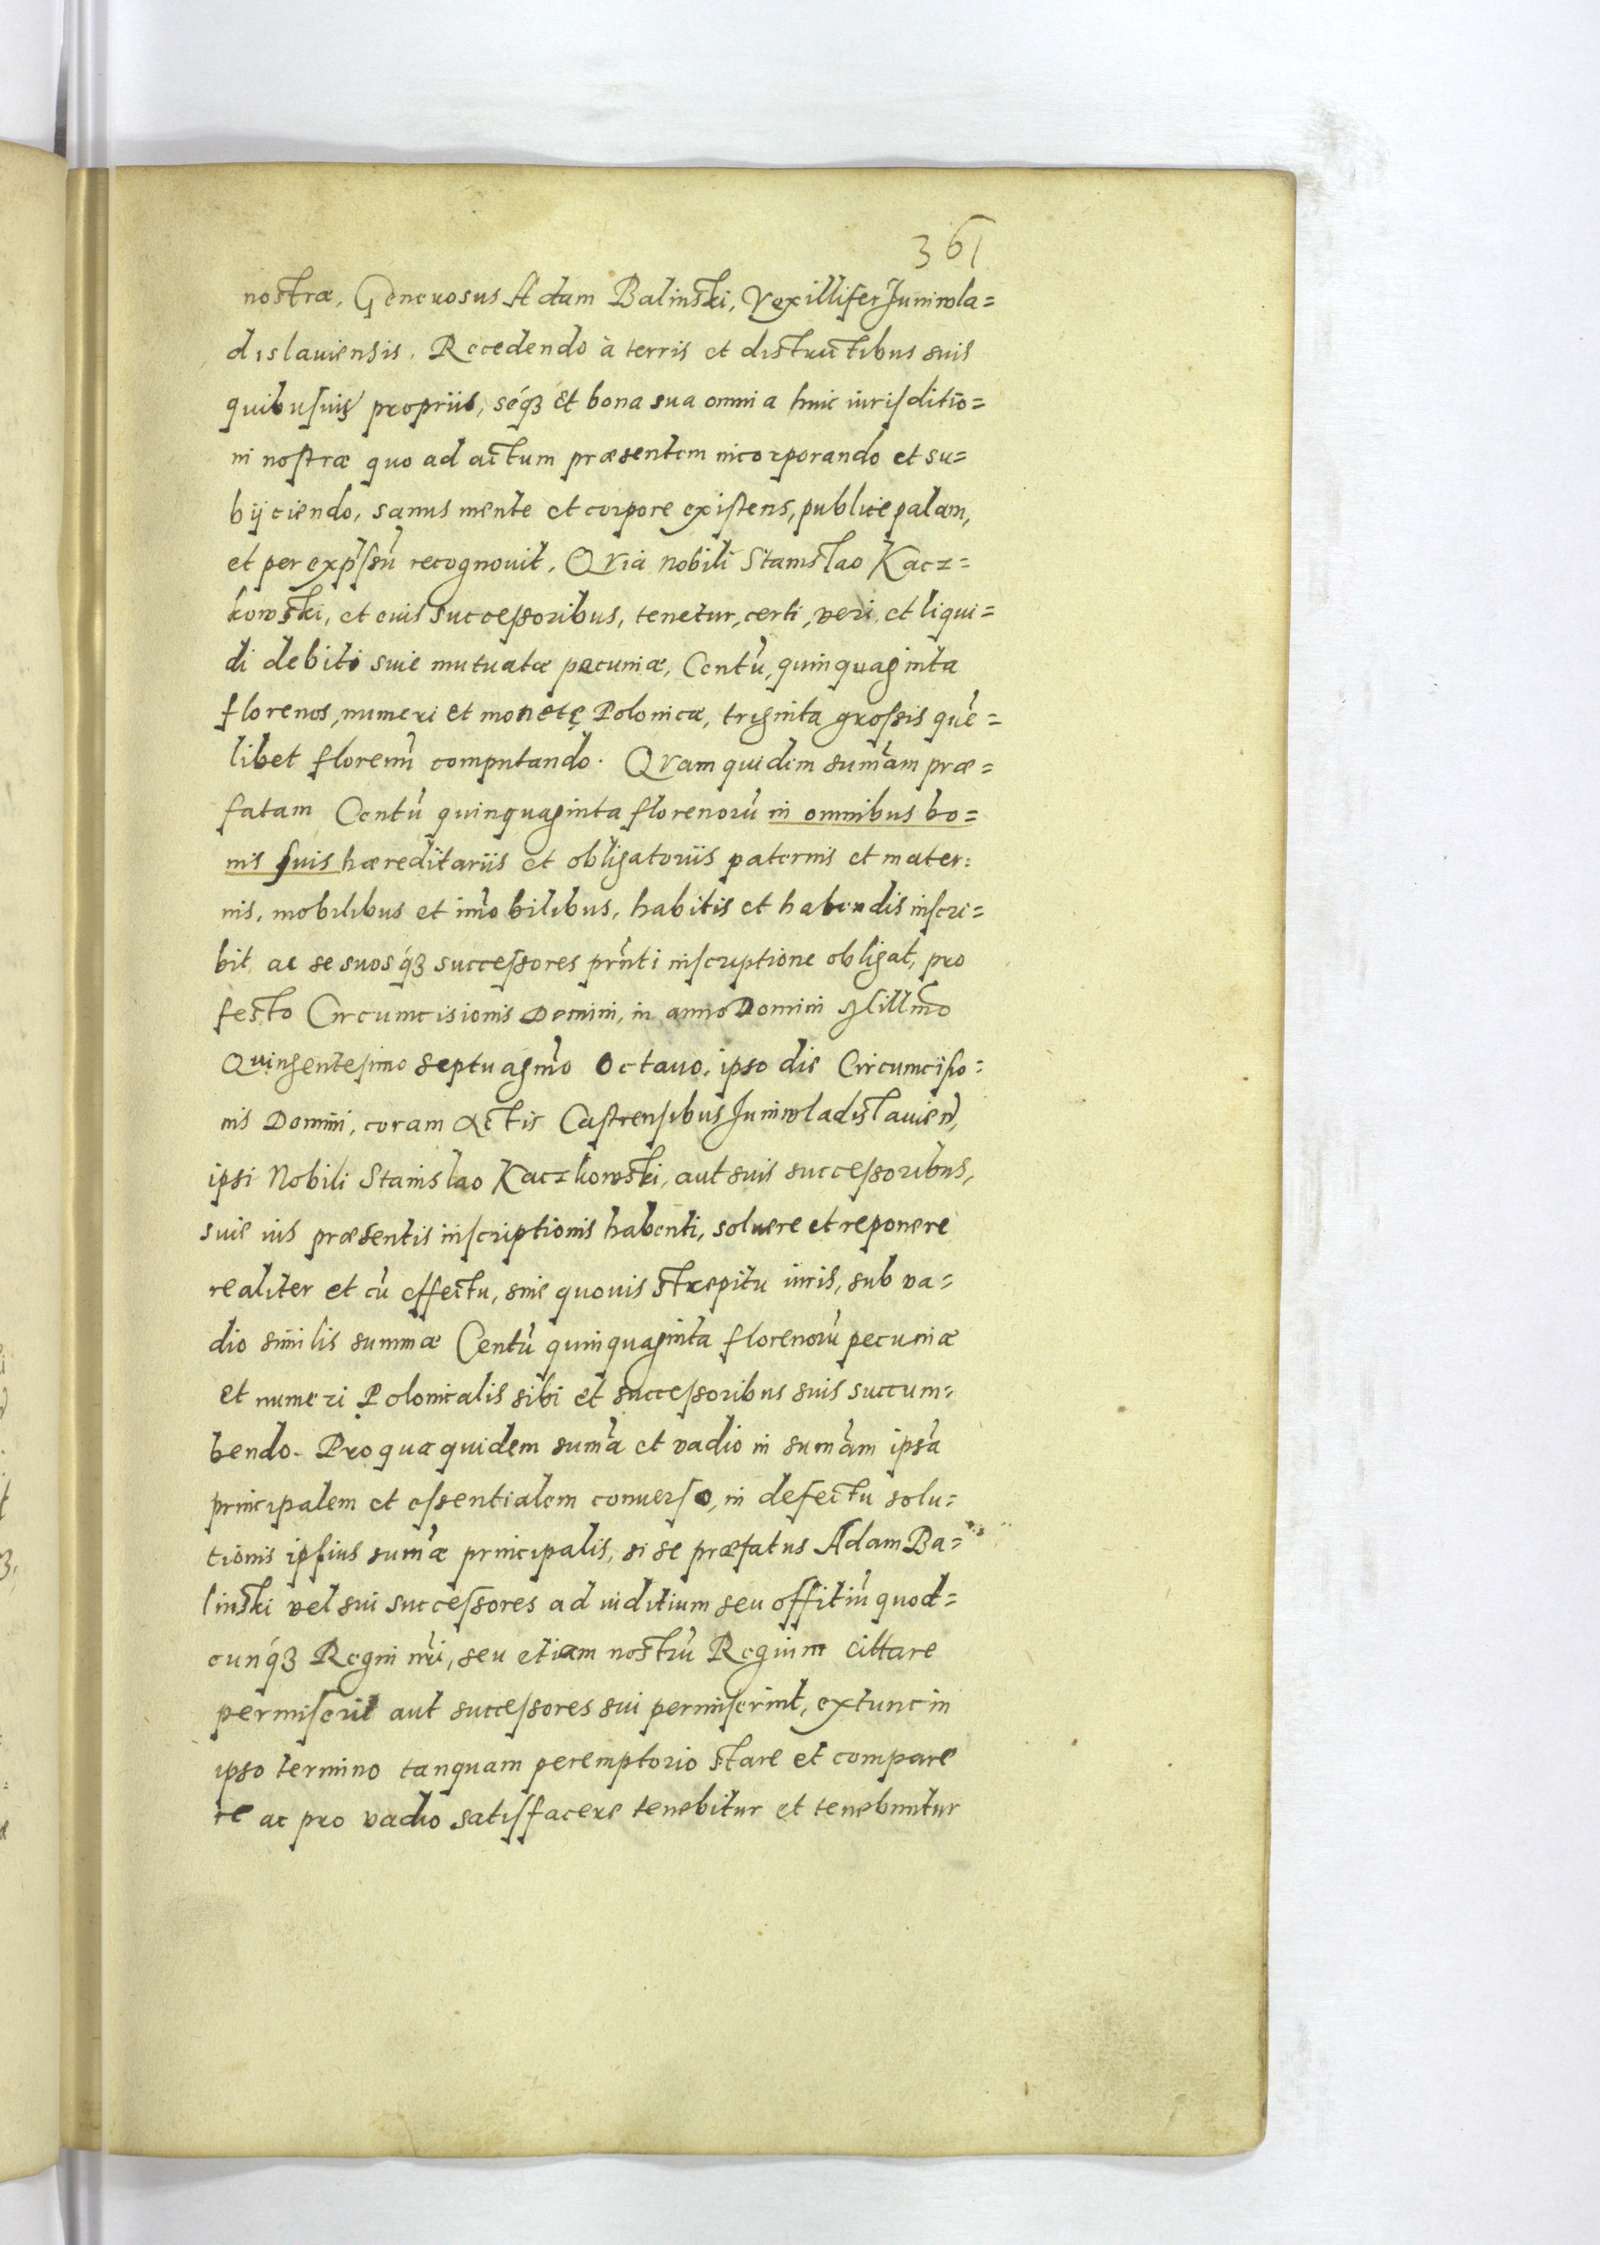 361
nostræ, Generosus Adam Balinski, Vexillifer Juniwla=
dislauiensis. Recedendo à terris et districtibus suis
quibusuis propriis, séq₃ et bona sua omnia huic iurisditio=
ni nostræ quo ad actum præsentem incorporando et su=
bijciendo, sanus mente et corpore existens, publice palam,
et per exp̄ssū recognouit. QVia Nobili Stanislao Kacz=
kowski, et euis successoribus, tenetur, certi, veri, et liqui=
di debiti siue mutuatæ pecuniæ, Centū, quinquaginta
florenos, numeri et monetę Polonicæ, triginta grossis quē=
libet florenū computando. QVam quidem sum̄am præ=
fatam Centū quinquaginta florenorū in omnibus bo=
nis suis hæreditariis et obligatoriis paternis et mater=
nis, mobilibus et im̄obilibus, habitis et habendis inscri=
bit, ac se suosq́₃ successores prn̄ti inscriptione obligat, pro
festo Circumcisionis Domini, in anno Domini Millm̄o
Quingentesimo septuagm̄o octauo, ipso die Circumcisio=
nis Domini, coram Actis Castrensibus Juniwladislauien̄,
ipsi Nobili Stanislao Kaczkowski, aut suis successoribus,
siue ius præsentis inscriptionis habenti, soluere et reponere
realiter et cū effectu, sine quouis strepitu iuris, sub va=
dio similis summæ Centū quinquaginta florenorū pecuniæ
et numeri Polonicalis sibi et successoribus suis succum=
bendo. Pro qua quidem sum̄a et vadio in sum̄am ipsā
principalem et essentialem conuerso, in defectu solu=
tionis ipsius sum̄æ principalis, si se præfatus Adam Ba=
linski vel sui successores ad iuditium seu offitiū quod=
cunq́₃ Regni nr̄i, seu etiam nostrū Regium cittare
permiserit aut successores sui permiserint, extunc in
ipso termino tanquam peremptorio stare et compare
re ac pro vadio satisfacere tenebitur et tenebuntur